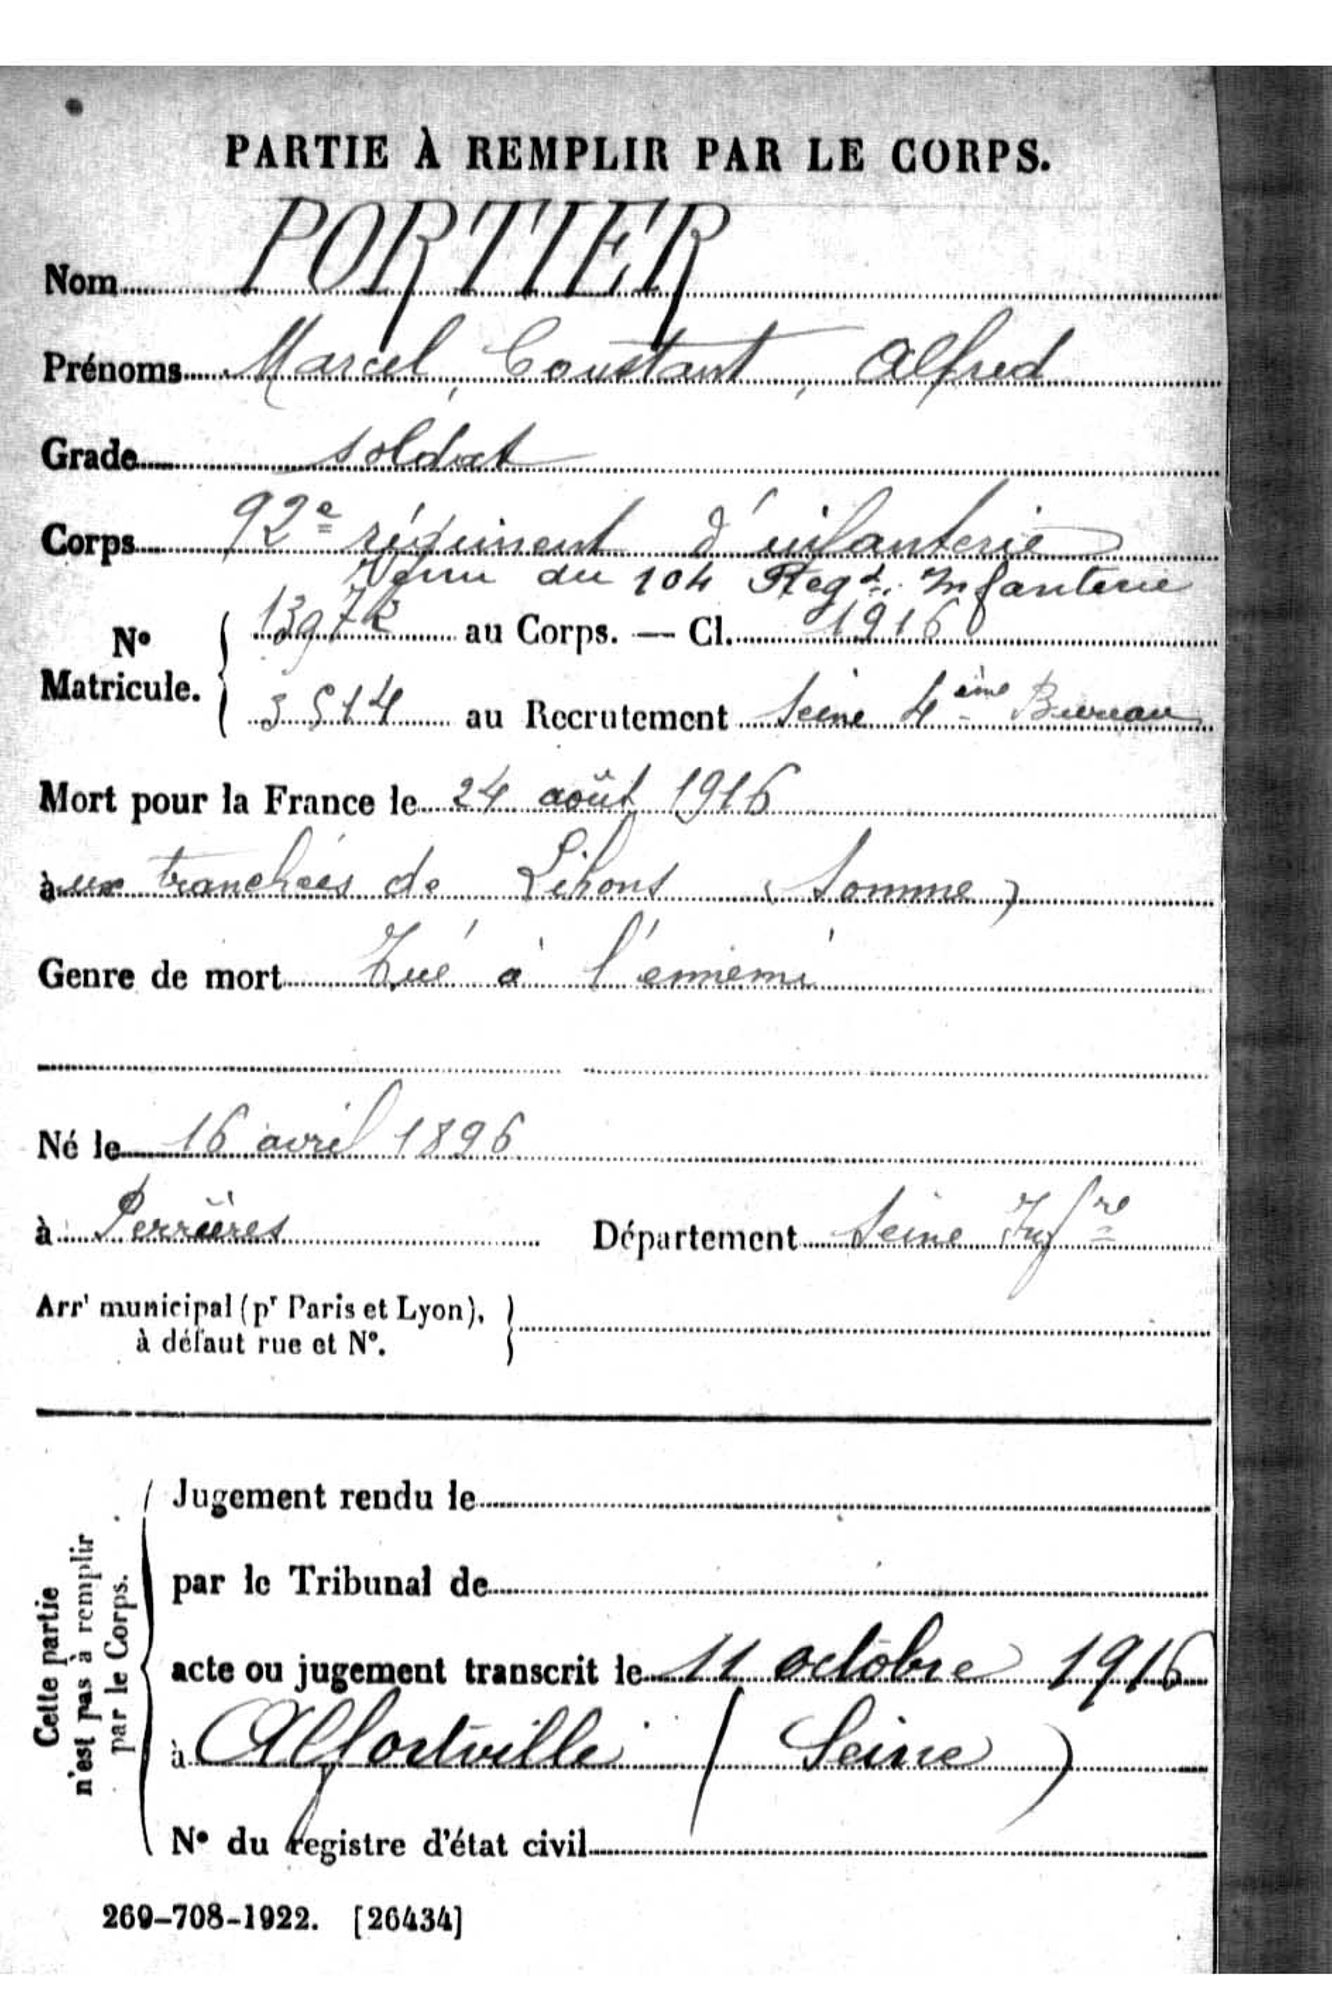 PARTIE À REMPLIR PAR LE CORPS.
Nom PORTIER
Prénoms Marcel, Constant, Alfred
Grade soldat
Corps 92e régiment d'infanterie
Venu du 104 Regt. Infanterie
No Matricule. { 13972 au Corps. — Cl. 1916
3514 au Recrutement Seine 4ème Bureau
Mort pour la France le 24 août 1916
à ux tranchées de Lihons (Somme)
Genre de mort Tué à l'ennemi
Né le 16 avril 1896
à Perrières Département Seine Infre
Arrt municipal (pr Paris et Lyon), }
à défaut rue et No.
Cette partie
n'est pas à remplir
par le Corps.
Jugement rendu le
par le Tribunal de
acte ou jugement transcrit le 11 octobre 1916
à Alfortville (Seine)
No du registre d'état civil
269-708-1922. [26434]